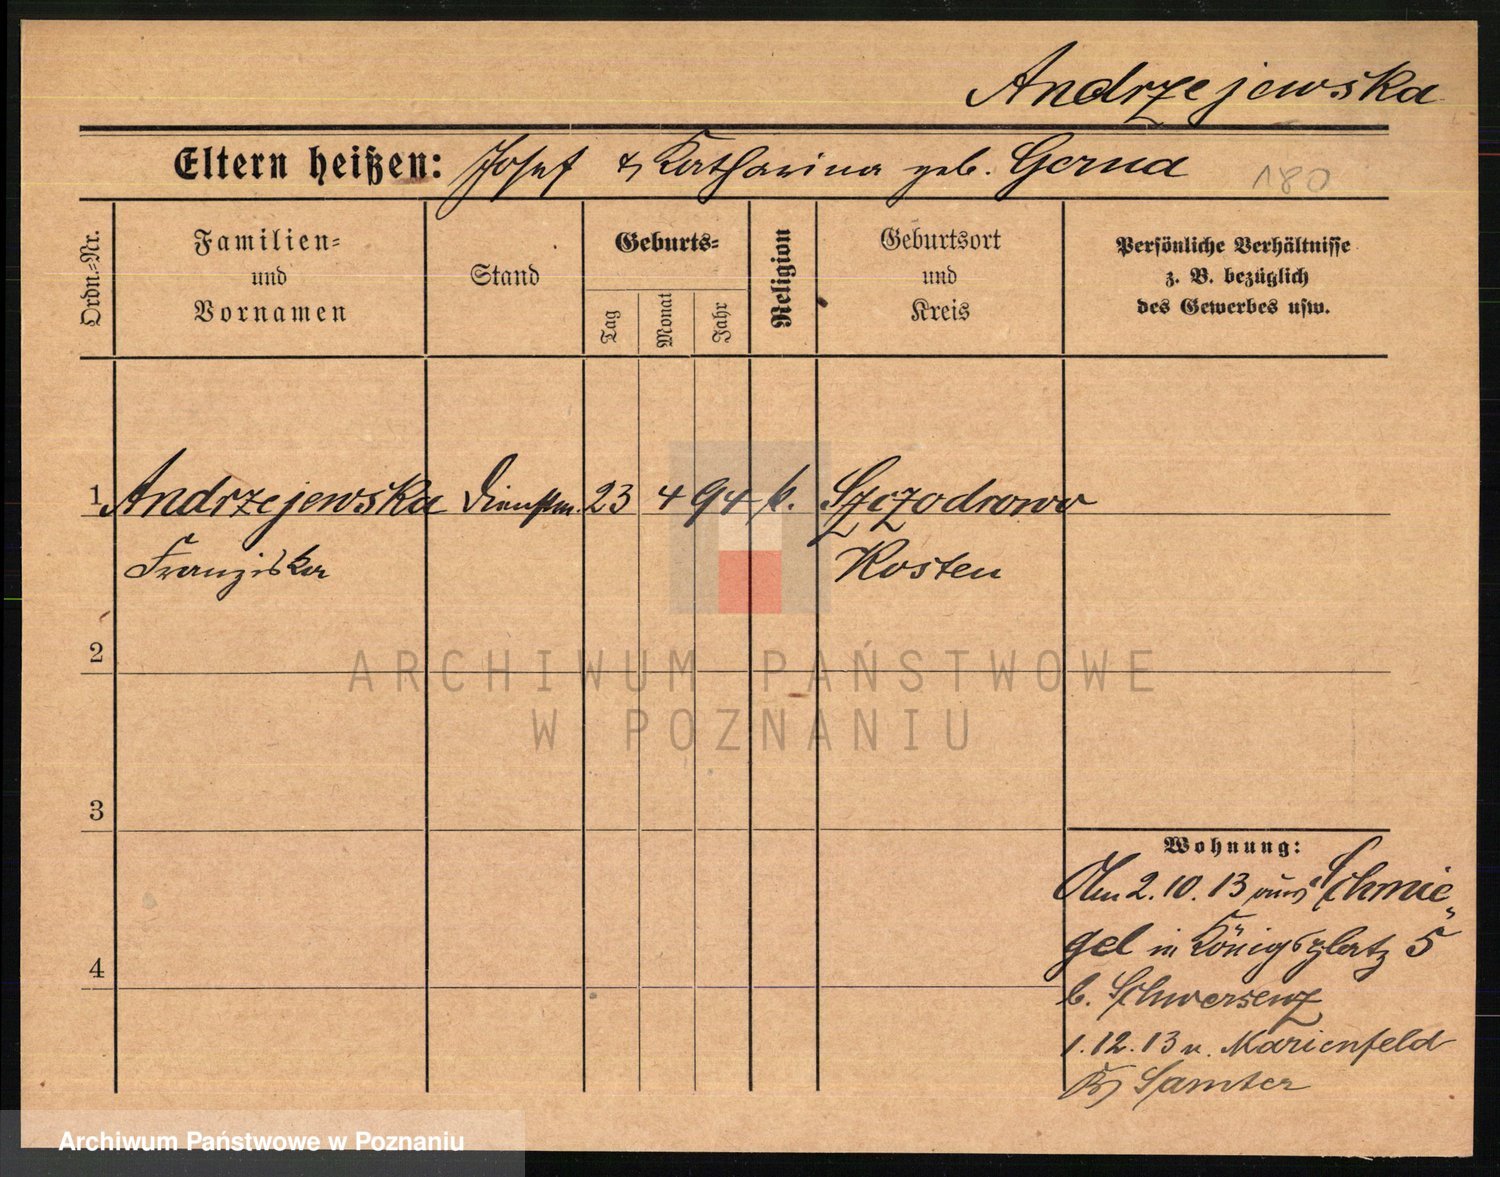 Andrzejewska
Eltern heißen: Josef & Katharina geb. Gorna
180
Ordn.=Nr.
Familien=
und
Vornamen
Stand
Geburts=
Tag
Monat
Jahr
Religion
Geburtsort
und
Kreis
Persönliche Verhältnisse
z. B. bezüglich
des Gewerbes usw.
1 Andrzejewska Dienstm. 23 4 94 k. Szczodrowo
Franziska Kosten
2
3
4
Wohnung:
Am 2. 10. 13 aus Schmie„
gel in Königsplatz 5
b. Schwersenz
1. 12. 13 n. Marienfeld
Kr. Samter
ARCHIWUM PAŃSTWOWE
W POZNANIU
Archiwum Państwowe w Poznaniu